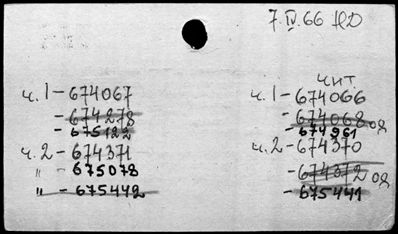 7.IV.66 НО
ч.1 - 674067
- 674278
- 675122
ч.2 - 674371
- 675078
" - 675442
чит
ч.1 - 674066
- 674068 од
- 674961
ч.2 - 674370
- 674372 од
- 675441